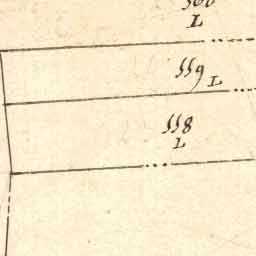 560
L
559 L
558
L